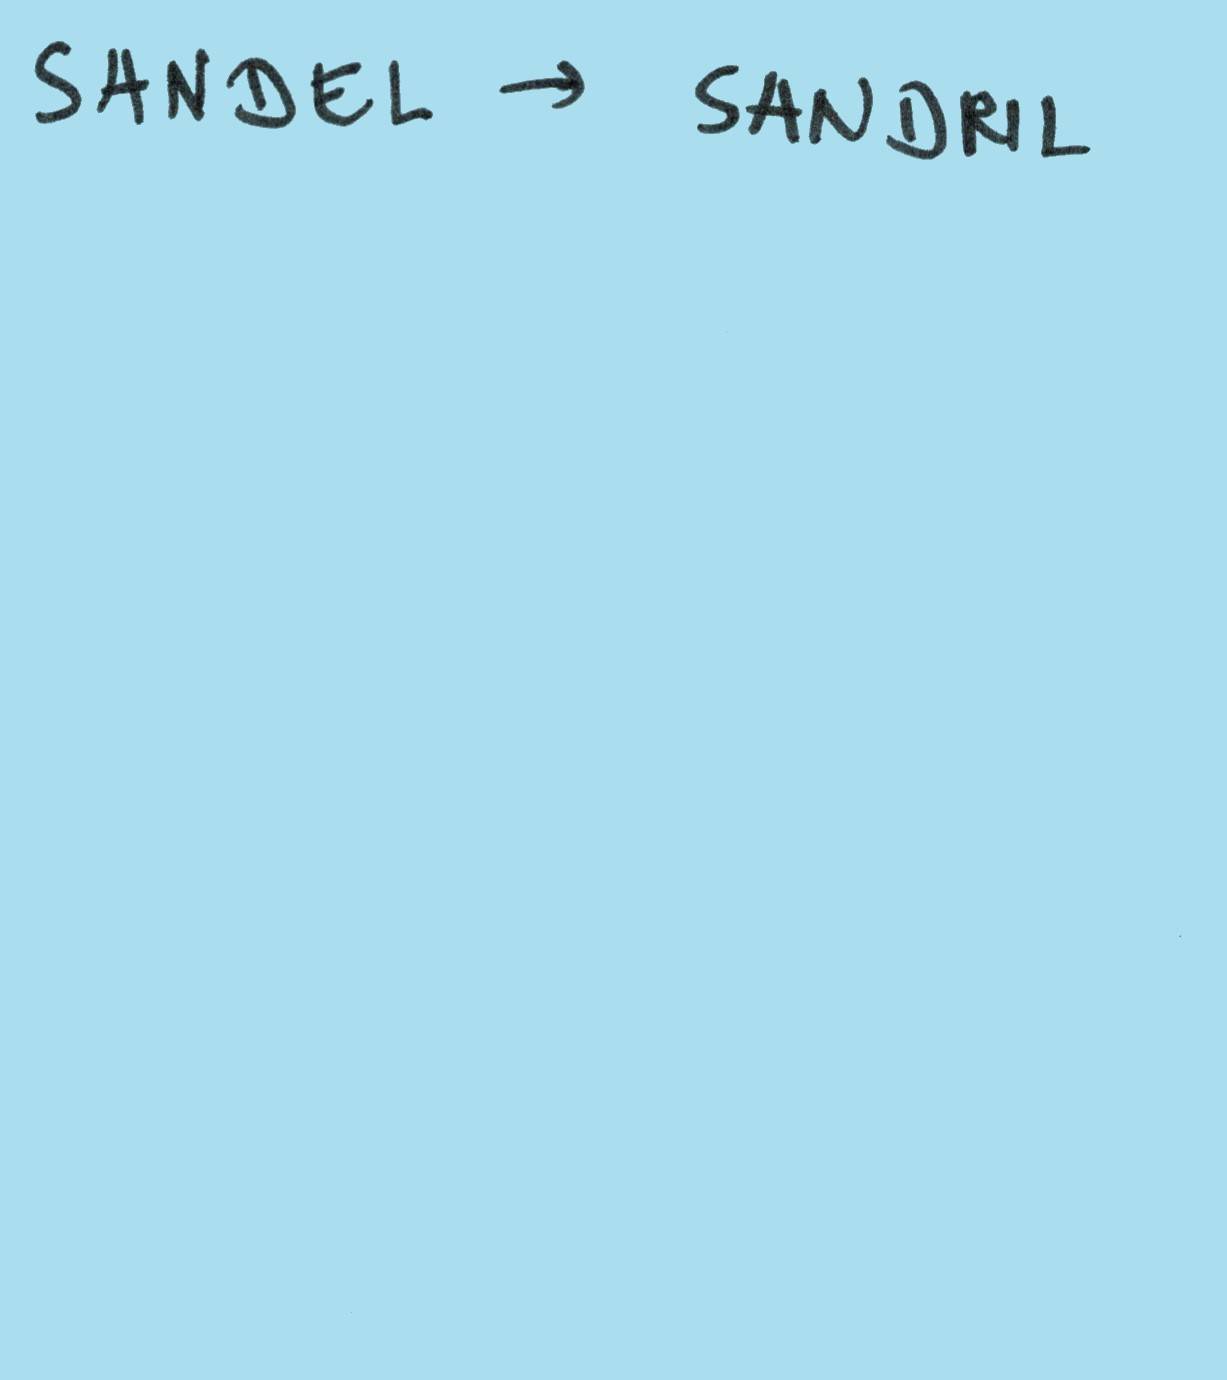 SANDEL → SANDRIL